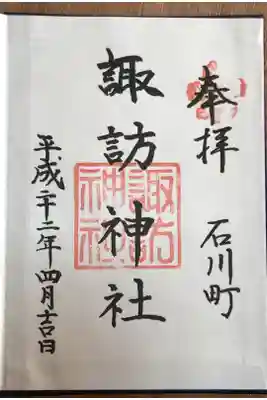 奉拝　石川町
諏訪神社
平成廿二年四月吉日
諏訪
神社